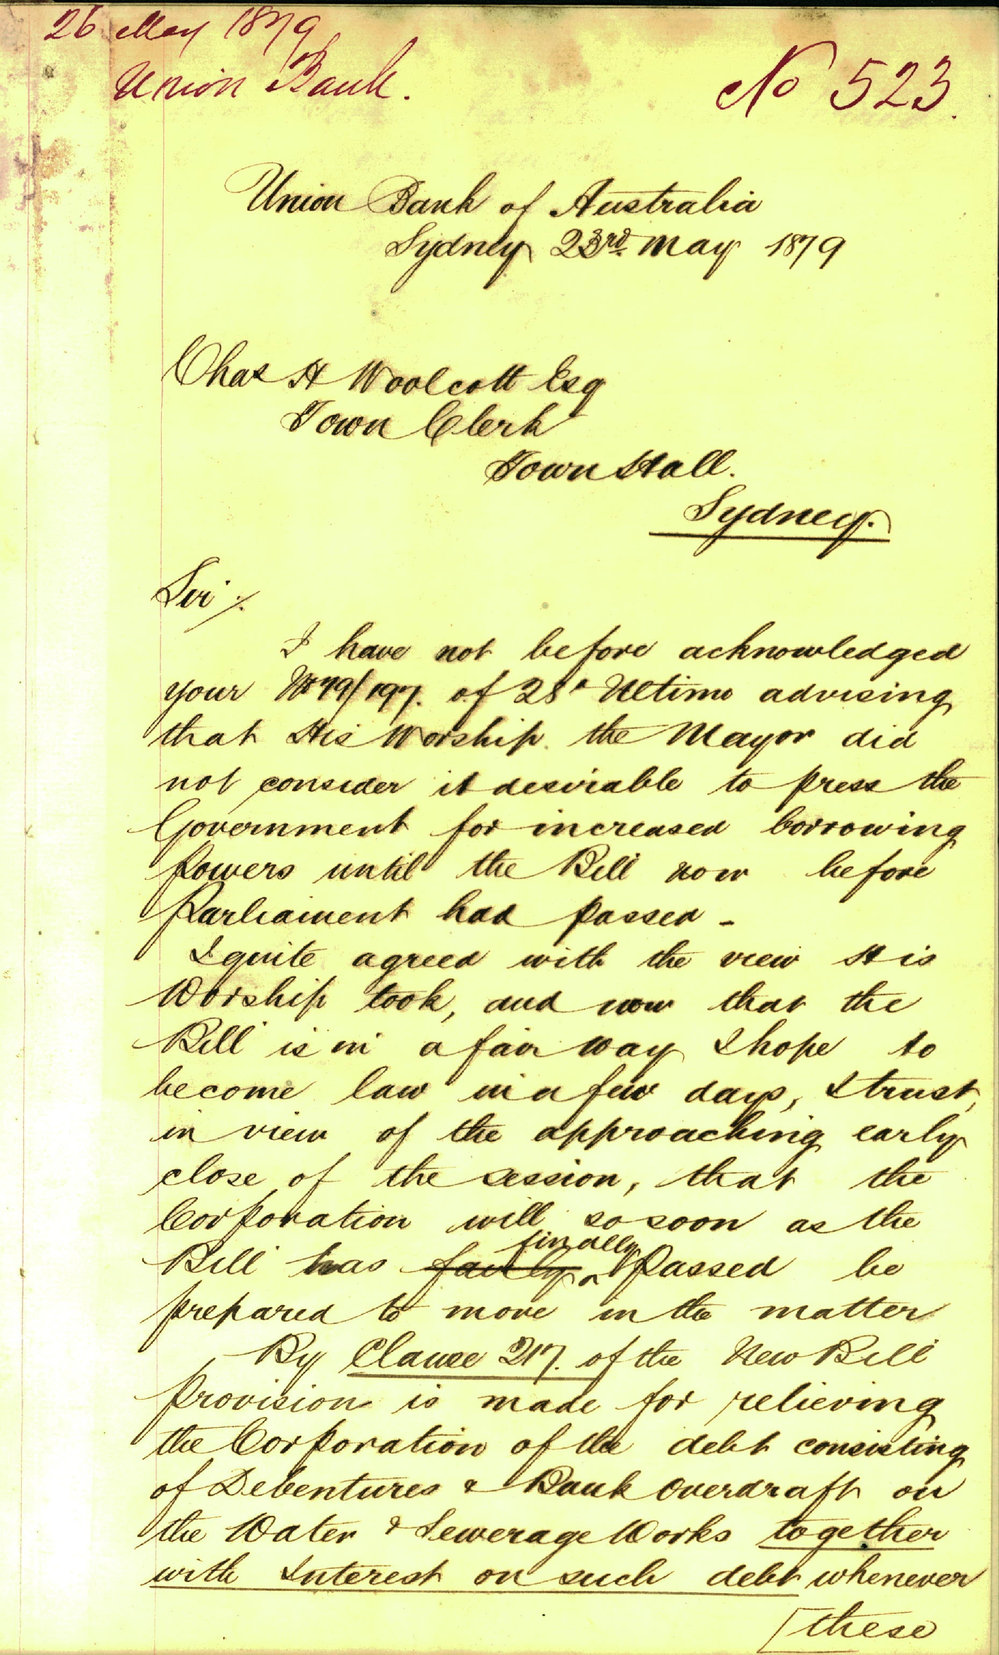 26 May 1879
Union Bank.
No 523.
Union Bank of Australia
Sydney 23rd. May 1879
Chas H Woolcott Esq
Town Clerk
Town Hall.
Sydney.
Sir/.
I have not before acknowledged
your No 79/197. of 28h Ultimo advising
that His Worship the Mayor did
not consider it desirable to press the
Government for increased borrowing
powers until the Bill now before
Parliament had passed -
I quite agreed with the view His
Worship took, and now that the
Bill is in a fair way I hope to
become law in a few days, I trust,
in view of the approaching early
close of the session, that the
Corporation will so soon as the
finally
Bill has fairly passed be
prepared to move in the matter
By Clause 217. of the New Bill
provision is made for relieving
the Corporation of the debt consisting
of Debentures & Bank overdraft on
the Water & Sewerage Works together
with Interest on such debt whenever
[these